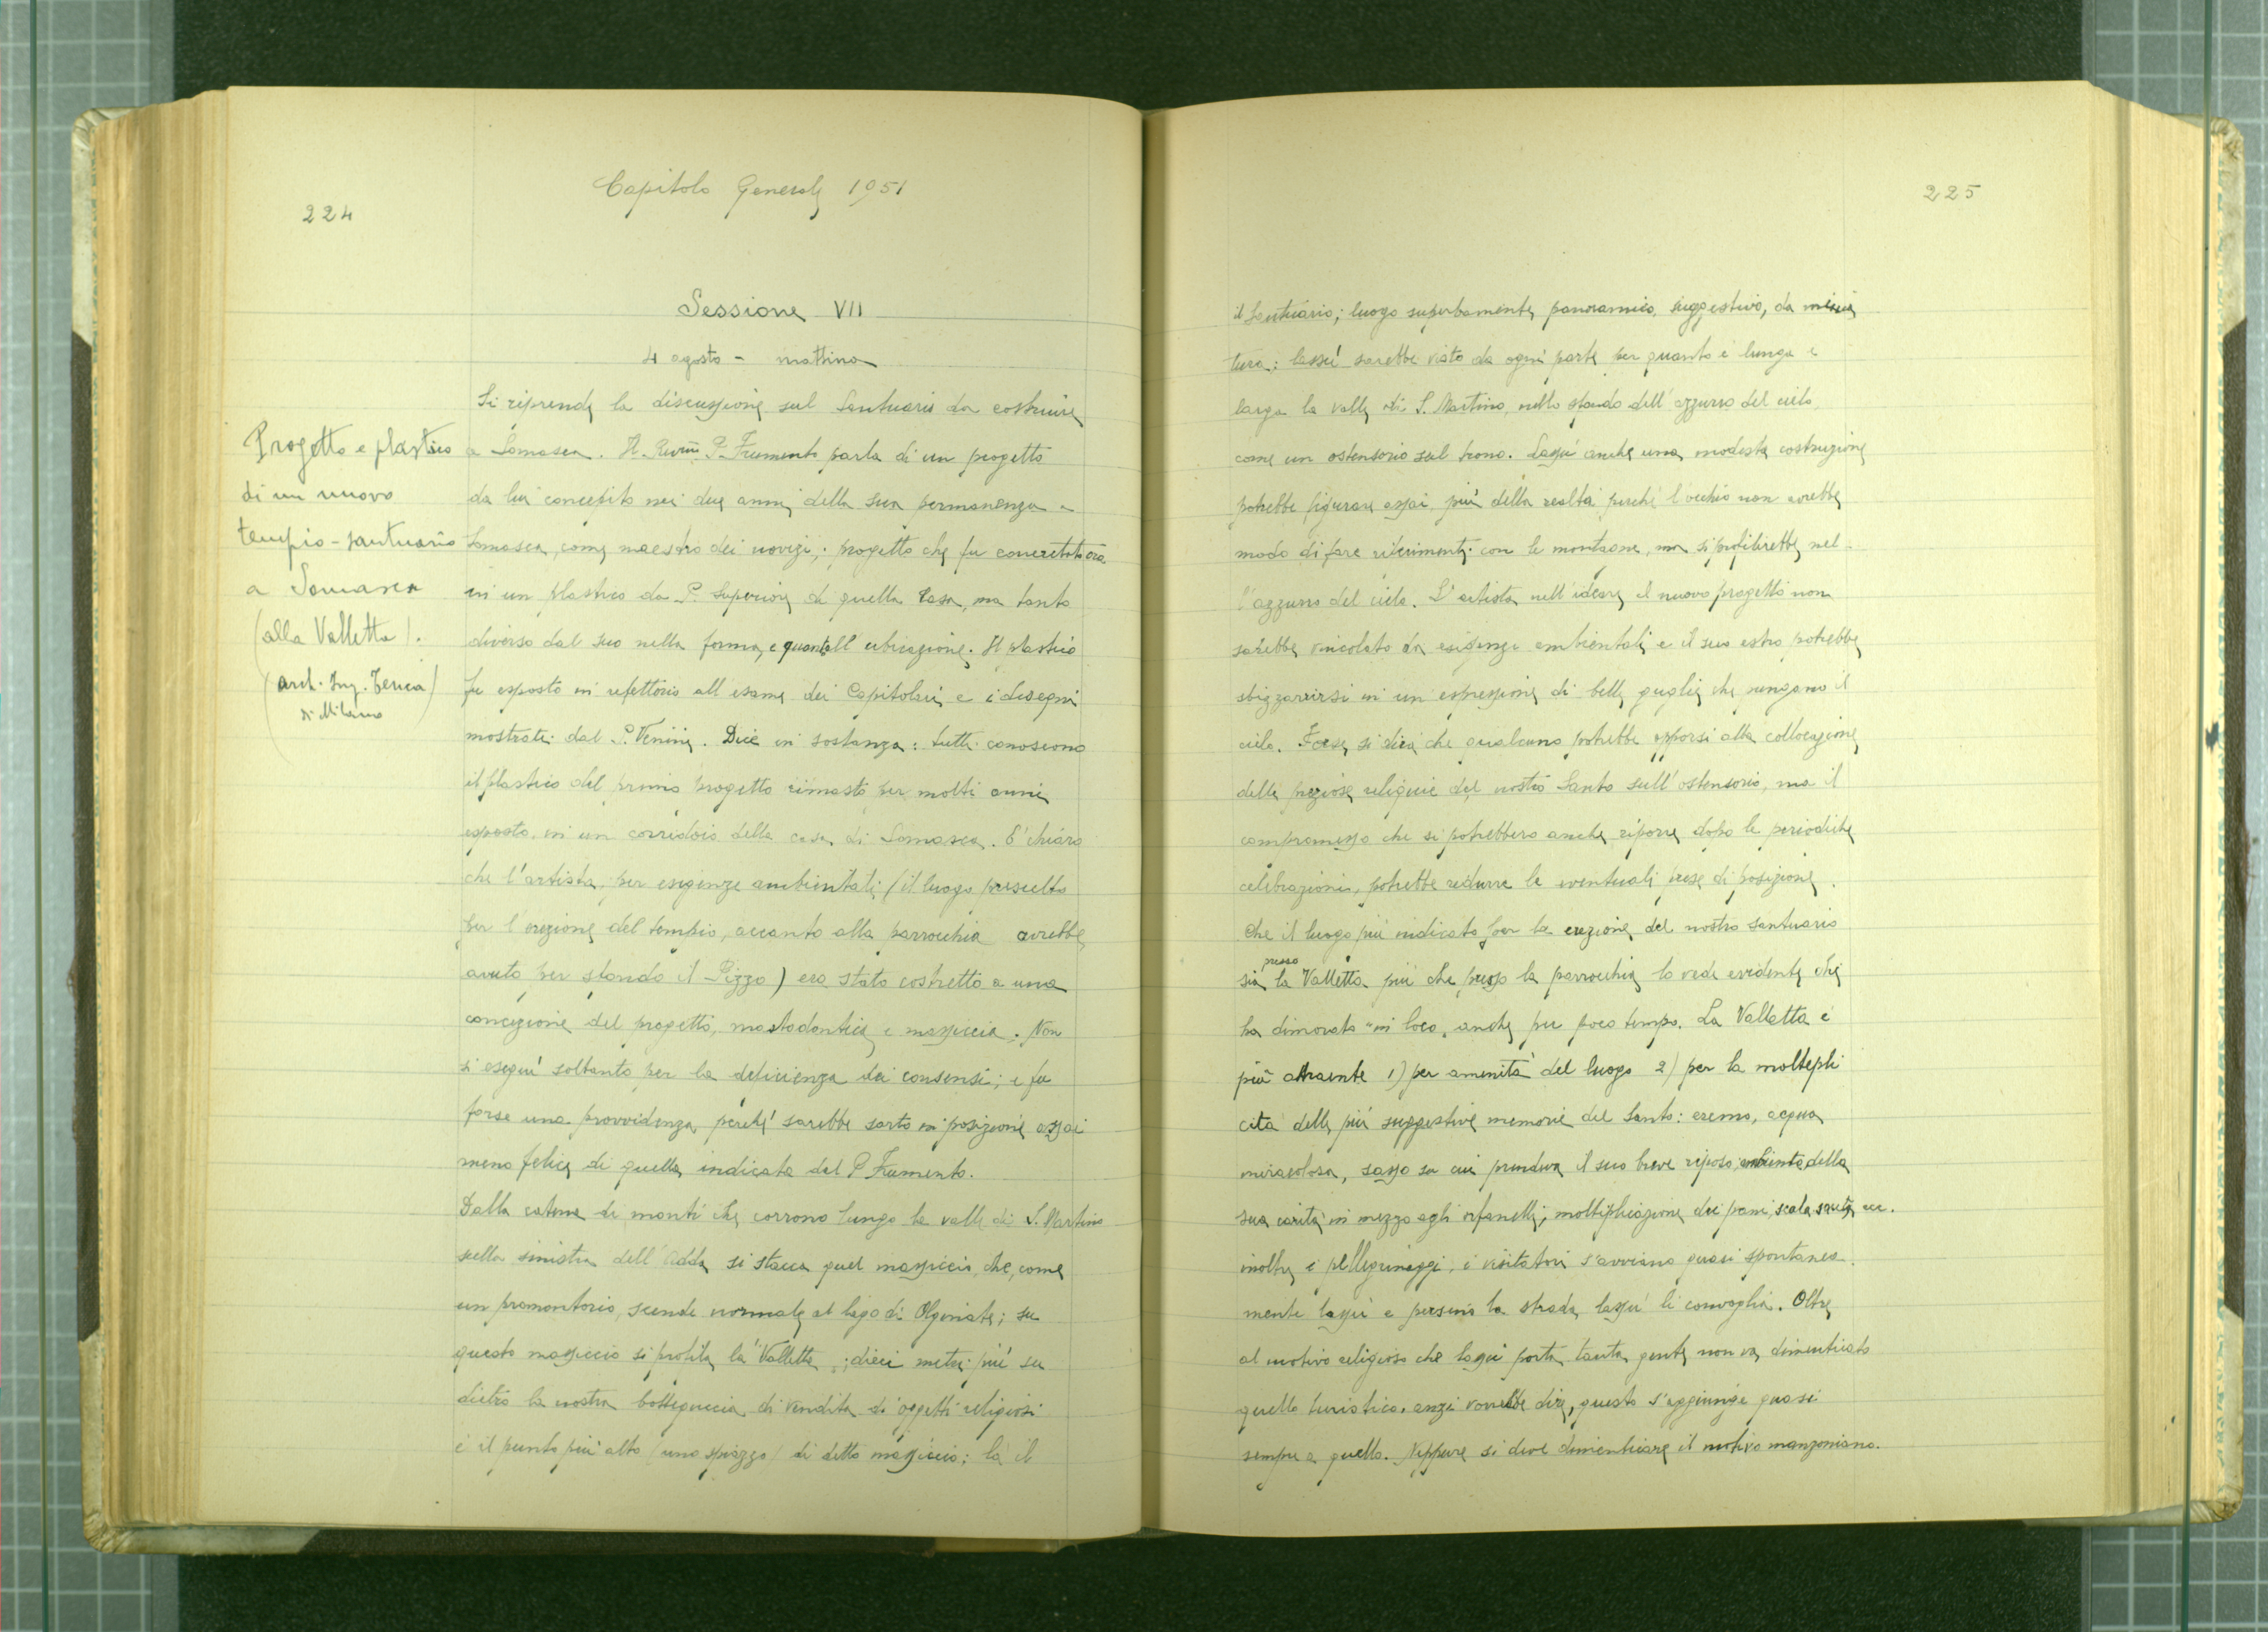 Capitolo Generale 1951
224
Sessione VII
4 agosto - mattina
Si riprende la discussione sul Santuario da costruire
a Somasca. Il Rev.mo P. Frumento parla di un progetto
da lui concepito nei due anni della sua permanenza a
Somasca, come maestro dei novizi; progetto che fu concretato ora
in un plastico da P. Superiore di quella Casa, ma tanto
diverso dal suo nella forma, e quant all ubicazione. Il plastico
fu esposto in refettorio all esame dei Capitolari e i disegni
mostrati dal P. Venini. Dice in sostanza: tutti conoscono
il plastico del primo progetto rimasto per molti anni
esposto in un corridoio della casa di Somasca. E' chiaro
che l'artista, per esigenze ambientali (il luogo prescelto
per l'erezione del tempio, accanto alla parrocchia avrebbe
avuto per sfondo il Pizzo) era stato costretto a una
concezione del progetto, mastodontica e massiccia. Non
si eseguì soltanto per la deficienza dei consensi; e fu
forse una provvidenza perché sarebbe sorto in posizione assai
meno felice di quella indicata dal P. Frumento.
Dalla catena di monti che corrono lungo la valle di S. Martino
sulla sinistra dell'Adda si stacca quel massiccio, che, come
un promontorio, scende normale al lago di Olginate; su
questo massiccio si profila la Valletta; dieci metri più su
dietro la nostra botteguccia di vendita di oggetti religiosi
è il punto più alto (uno spiazzo) di detto massiccio; là il
Progetto e plastico
di un nuovo
tempio-santuario
a Somasca
(alla Valletta).
(arch. Ing.
di Milano
225
il Santuario; luogo superbamente panoramico, suggestivo, da minia
tura; lassù sarebbe visto da ogni parte per quanto è lunga e
larga la valle di S. Martino, nello sfondo dell'azzurro del cielo
come un ostensorio sul trono. Lassù anche una modesta costruzione
potrebbe figurare assai più della realtà perché l'occhio non avrebbe
modo di fare riferimenti con le montagne, ma si profilerebbe nel-
l'azzurro del cielo. L'artista nell'ideare il nuovo progetto non
sarebbe vincolato da esigenze ambientali e il suo estro potrebbe
sbizzarrirsi in un espressione di belle guglie che pungano il
cielo. Forse si dirà che qualcuno potrebbe opporsi alla collocazione
delle preziose reliquie del nostro Santo sull'ostensorio, ma il
compromesso che si potrebbero anche riporre dopo le periodiche
celebrazioni, potrebbe ridurre le eventuali prese di posizione.
Che il luogo più indicato per la erezione del nostro santuario
sia presso la Valletta più che presso la parrocchia lo vede evidente chi
ha dimorato "in loco" anche per poco tempo. La Valletta è
più attraente 1) per amenità del luogo 2) per la moltepli
cità delle più suggestive memorie del Santo: eremo, acqua
miracolosa, sasso su cui prendeva il suo breve riposo, ambiente della
sua carità in mezzo agli orfanelli; moltiplicazione dei pani, scala santa ecc.
inoltre i pellegrinaggi, i visitatori s'avviano quasi spontanea-
mente lassù e persino la strada lassù li convoglia. Oltre
al motivo religioso che lassù porta tanta gente non va dimenticato
quello turistico, anzi vorrebbe dire, questo s'aggiunge quasi
sempre a quello. Neppure si deve dimenticare il motivo manzoniano.